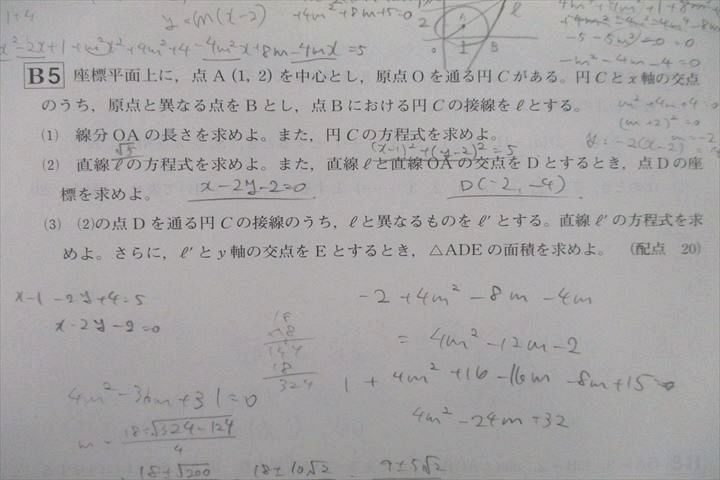 1+4
y=m(x-2)
+4m²+8m+5=0
x²-2x+1+m²x²+4m²+4-4m²x+8m-4mx=5
2
A
ℓ
O
B
-5-5m²=0
-m²-4m-4=0
m²+4m+4=0
(m+2)²=0
m=-2
B5 座標平面上に，点A(1, 2)を中心とし，原点Oを通る円Cがある。円Cとx軸の交点
のうち，原点と異なる点をBとし，点Bにおける円Cの接線をℓとする。
(1) 線分OAの長さを求めよ。また，円Cの方程式を求めよ。
√5 (x-1)²+(y-2)²=5
(2) 直線ℓの方程式を求めよ。また，直線ℓと直線OAの交点をDとするとき，点Dの座
標を求めよ。 x-2y-2=0 D(-2, -4)
(3) (2)の点Dを通る円Cの接線のうち，ℓと異なるものをℓ′とする。直線ℓ′の方程式を求
めよ。さらに，ℓ′とy軸の交点をEとするとき，△ADEの面積を求めよ。 (配点 20)
x-1-2y+4=5
x-2y-2=0
18
×18
144
18
324
4m²-36m+31=0
m=18±√324-124
4
18±√200
18±10√2
9±5√2
-2+4m²-8m-4m
=4m²-12m-2
1+4m²+16-16m-8m+15=0
4m²-24m+32